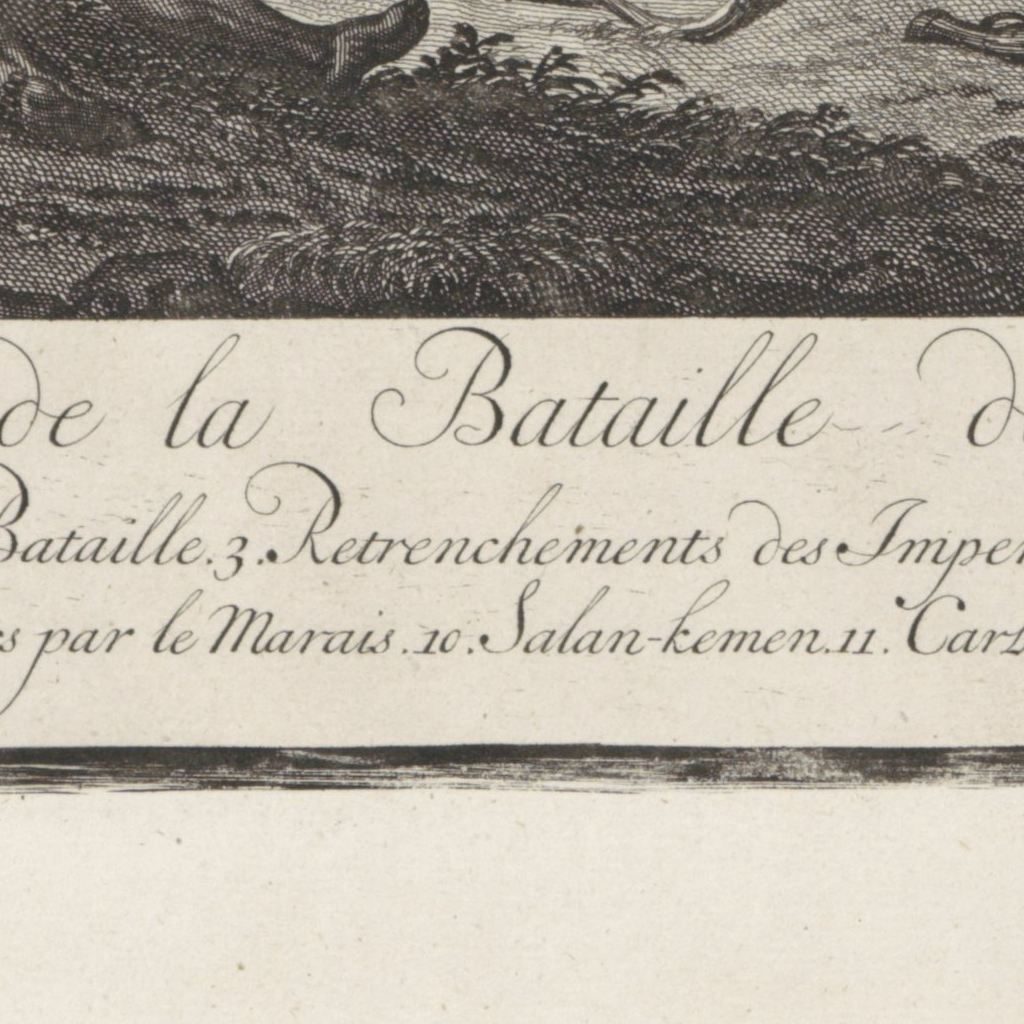 de la Bataille d
Bataille. 3. Retrenchements des Imper
s par le Marais. 10. Salan-kemen. 11. Carl